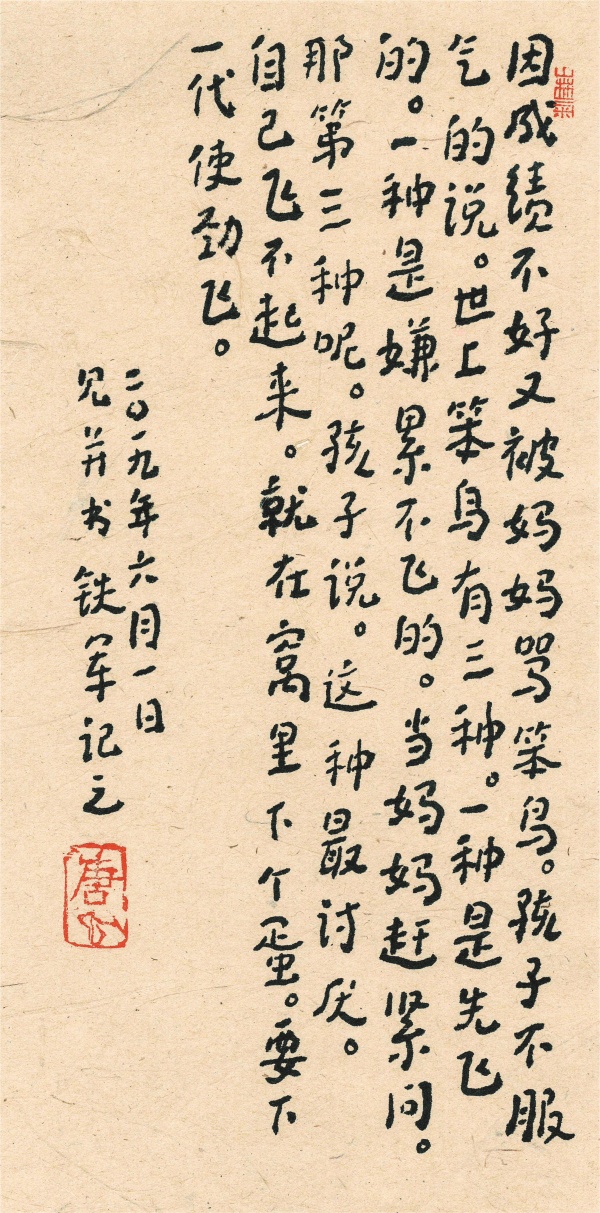 因成绩不好又被妈妈骂笨鸟。孩子不服
气的说。世上笨鸟有三种。一种是先飞
的。一种是嫌累不飞的。当妈妈赶紧问。
那第三种呢。孩子说。这种最讨厌。
自己飞不起来。就在窝里下个蛋。要下
一代使劲飞。
二〇一九年六月一日
见并书铁军记之
唐